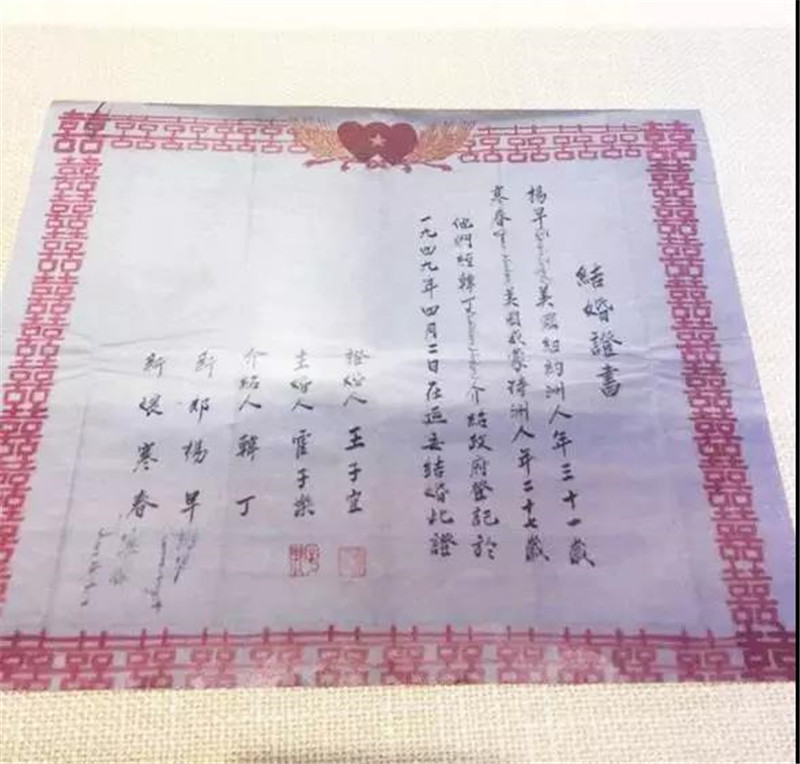 結婚證書
楊早 美國紐約洲人年三十一歲
寒春 美國 蒙特洲人年二十七歲
他們經韓丁 介紹政府登記於
一九四九年四月二日在延安結婚此證
證婚人 王子宜
主婚人 霍子樂
介紹人 韓丁
新郎 楊早
新娘 寒春